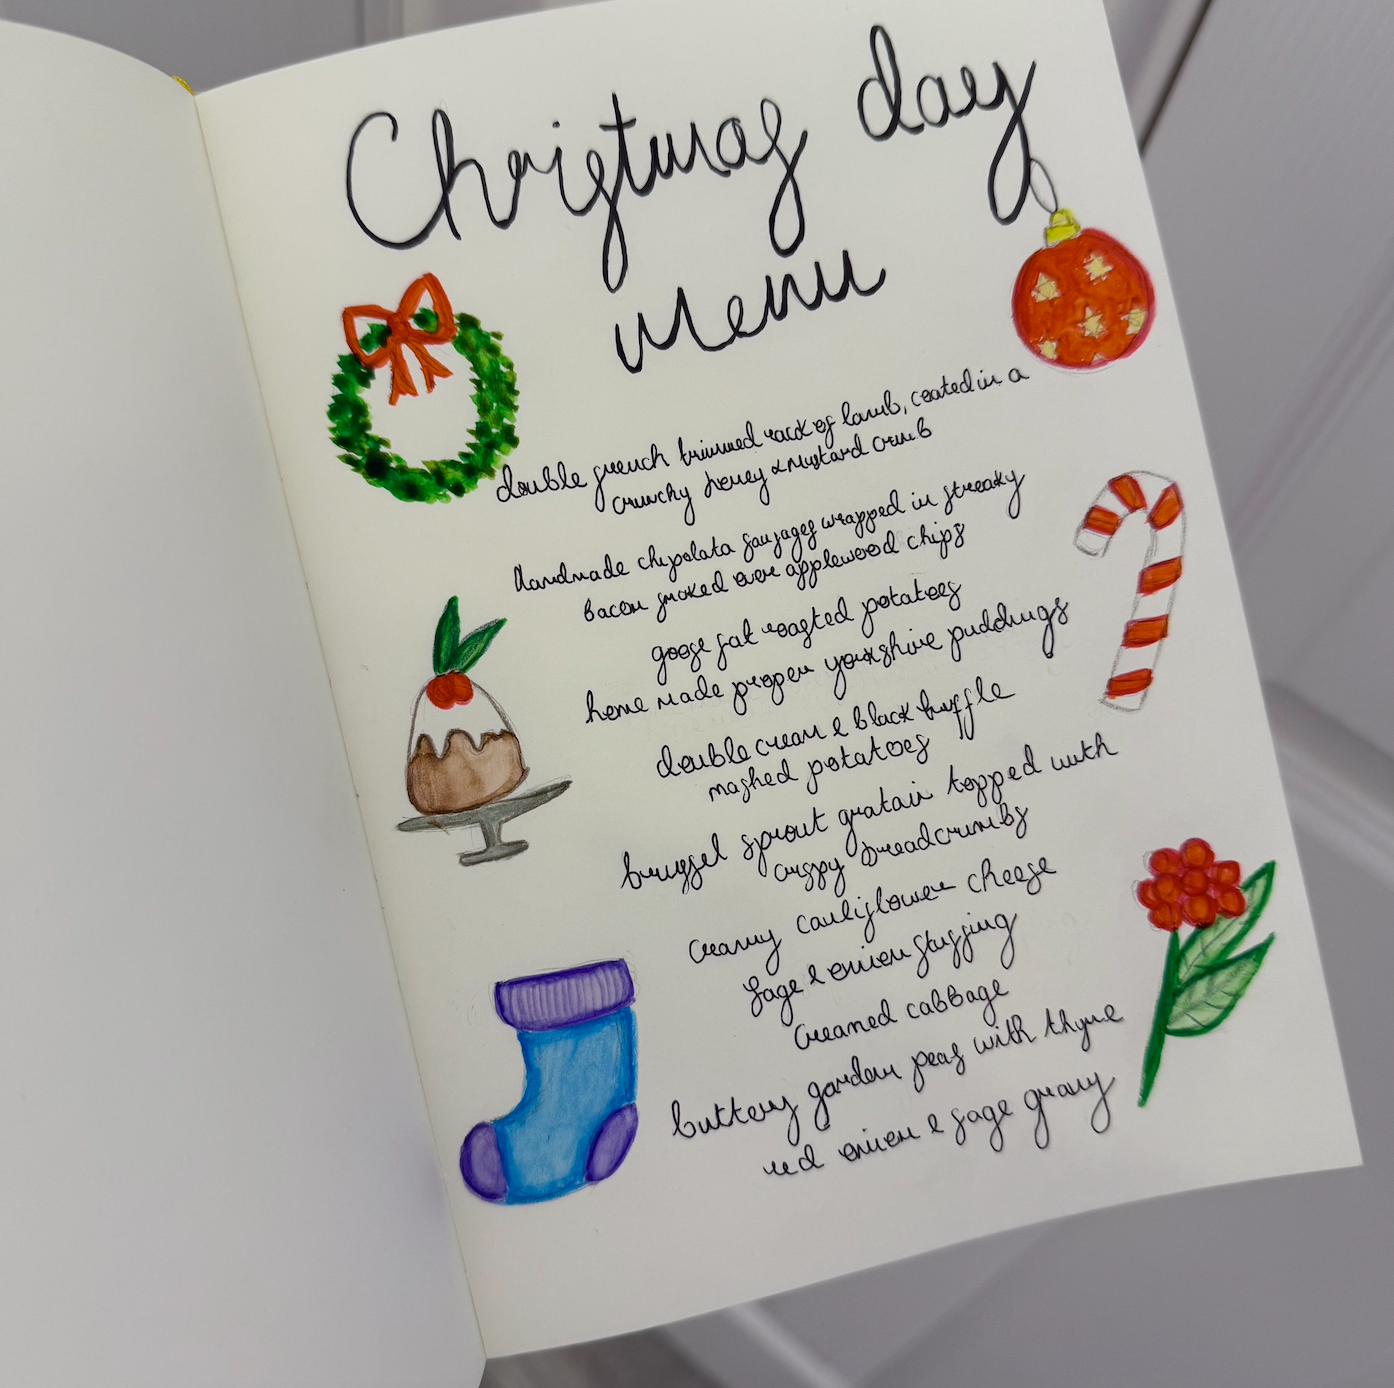 Christmas day
Menu
double french trimmed rack of lamb, coated in a
crunchy honey & mustard crumb
Handmade chipolata sausages wrapped in streaky
bacon smoked over applewood chips
goose fat roasted potatoes
home made proper yorkshire puddings
double cream & black truffle
mashed potatoes
brussel sprout gratain topped with
crispy breadcrumbs
creamy cauliflower cheese
sage & onion stuffing
creamed cabbage
buttery garden peas with thyme
red onion & sage gravy